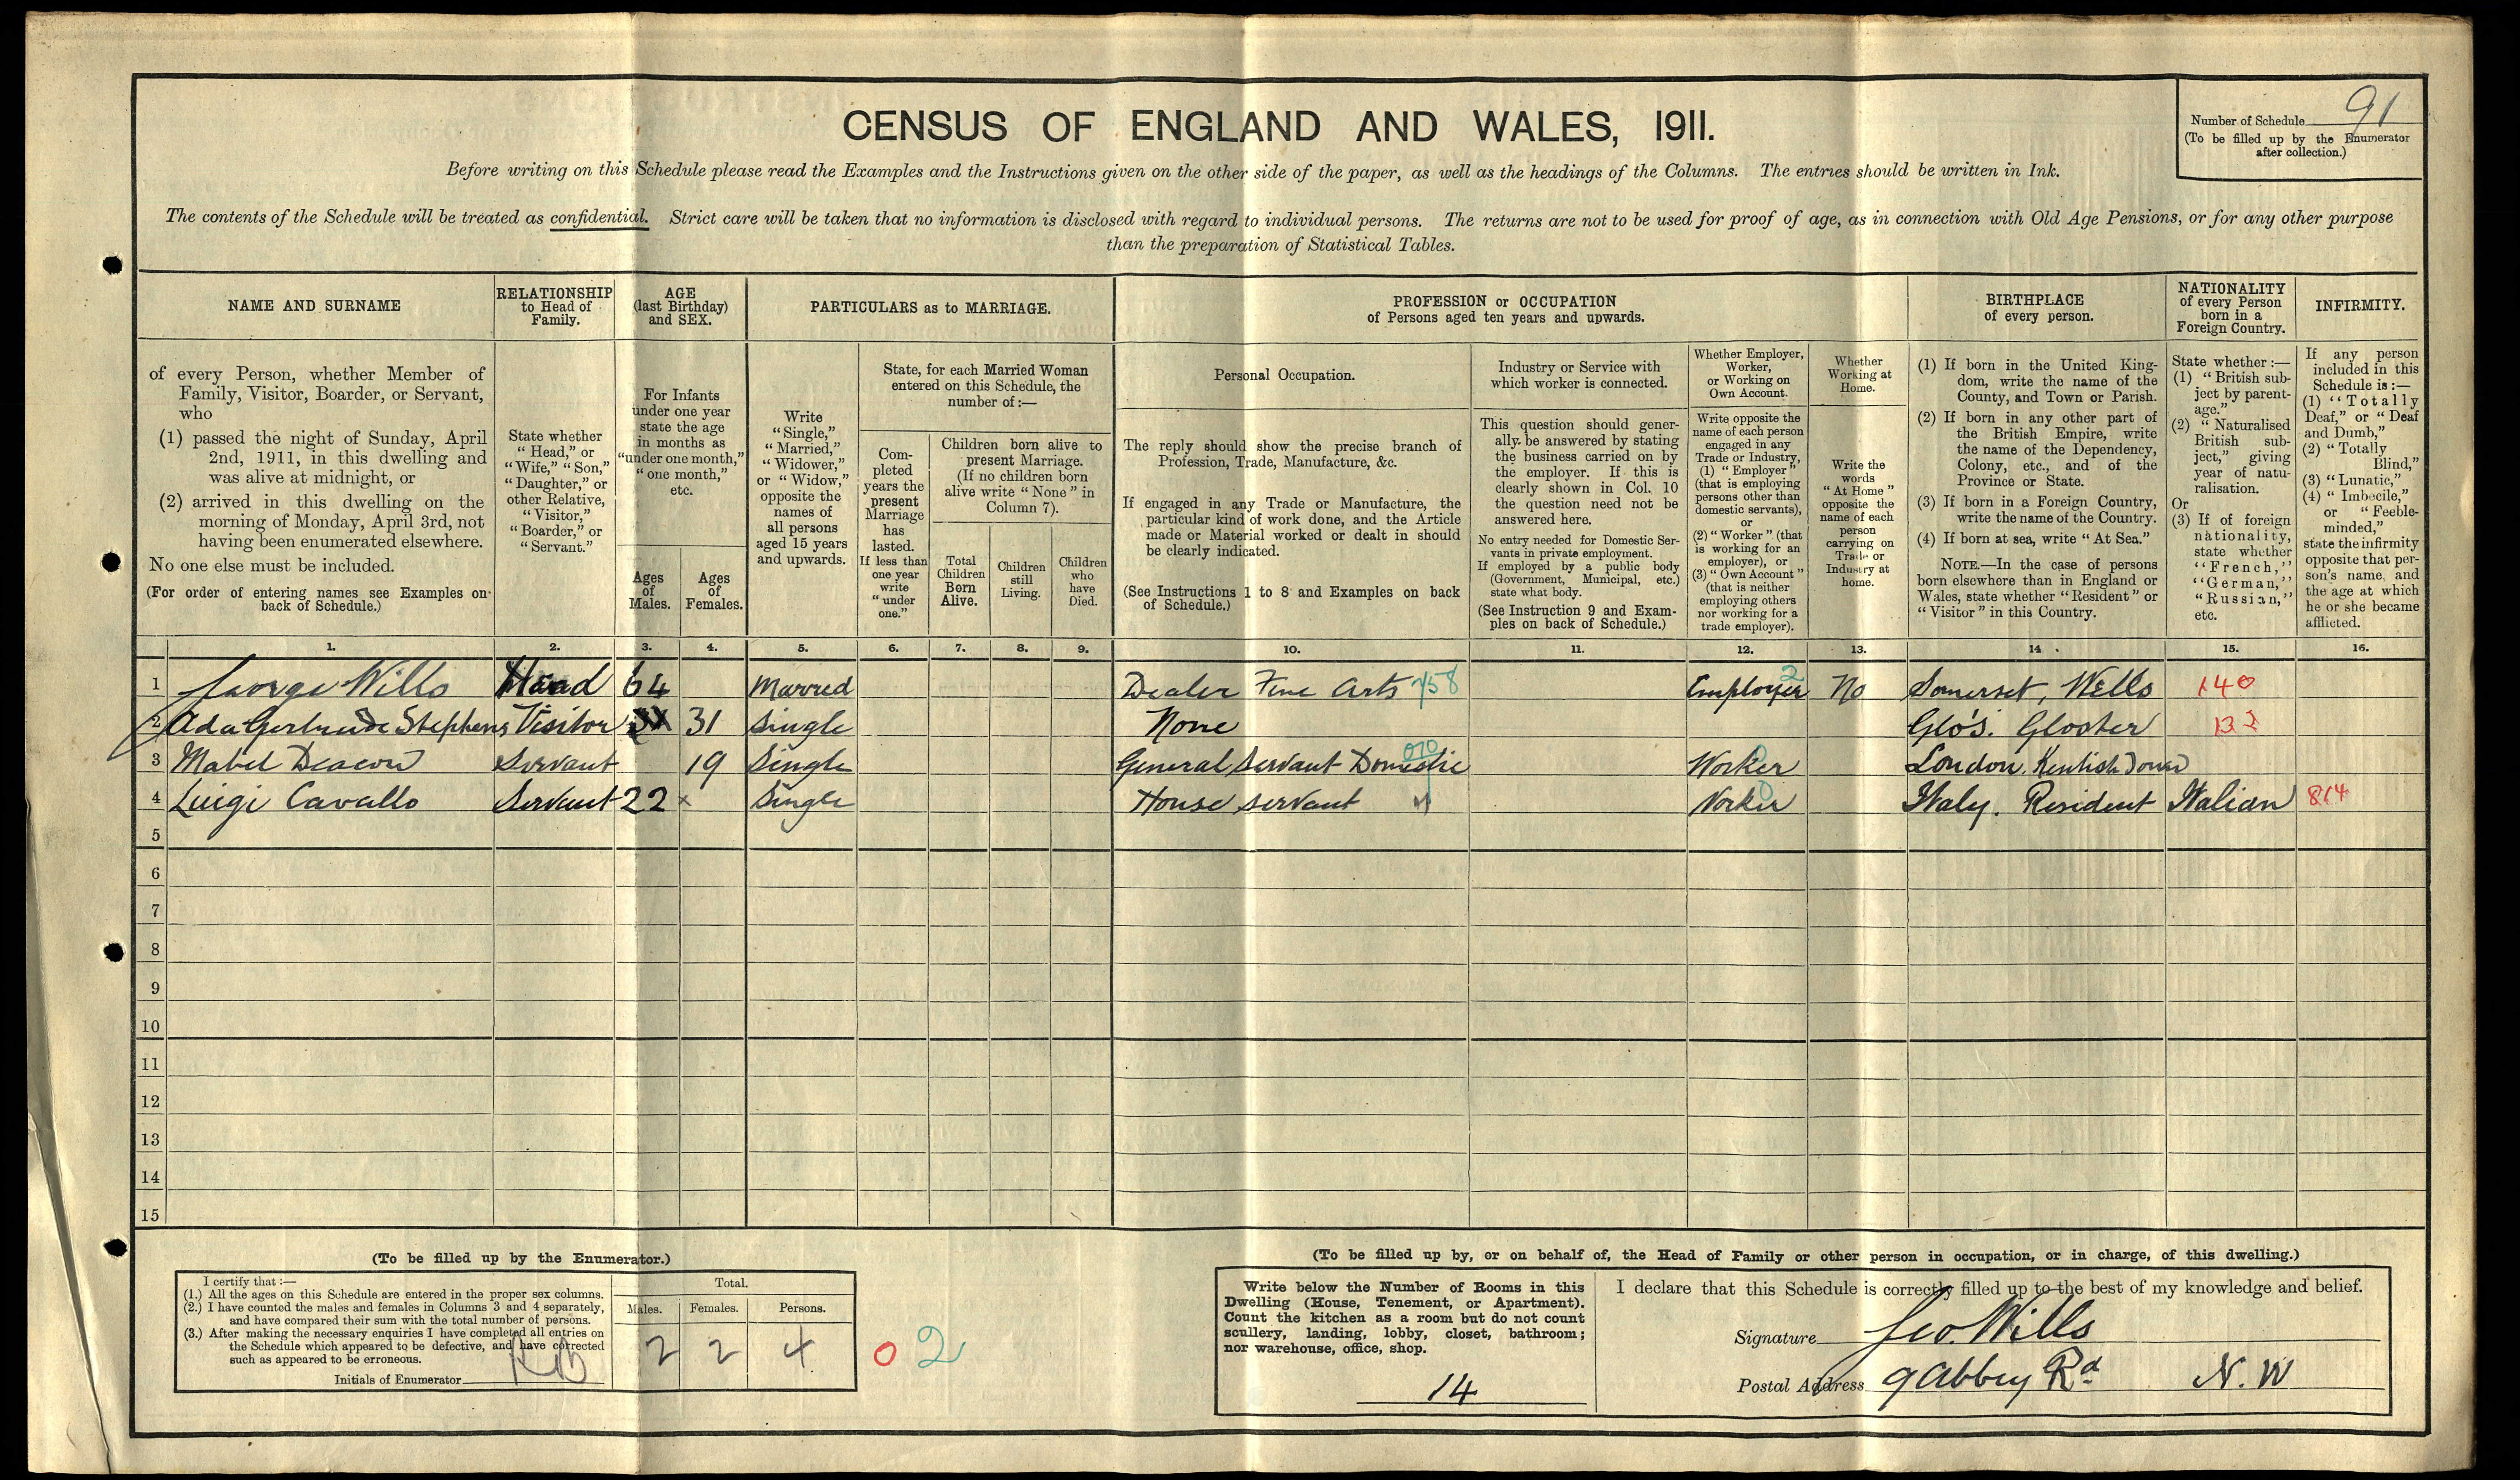 CENSUS OF ENGLAND AND WALES, 1911.
Number of Schedule 91
(To be filled up by the Enumerator
after collection.)
Before writing on this Schedule please read the Examples and the Instructions given on the other side of the paper, as well as the headings of the Columns. The entries should be written in Ink.
The contents of the Schedule will be treated as confidential. Strict care will be taken that no information is disclosed with regard to individual persons. The returns are not to be used for proof of age, as in connection with Old Age Pensions, or for any other purpose
than the preparation of Statistical Tables.
NAME AND SURNAME
of every Person, whether Member of
Family, Visitor, Boarder, or Servant,
who
(1) passed the night of Sunday, April
2nd, 1911, in this dwelling and
was alive at midnight, or
(2) arrived in this dwelling on the
morning of Monday, April 3rd, not
having been enumerated elsewhere.
No one else must be included.
(For order of entering names see Examples on
back of Schedule.)
RELATIONSHIP
to Head of
Family.
State whether
"Head," or
"Wife," "Son,"
"Daughter," or
other Relative,
"Visitor,"
"Boarder," or
"Servant."
AGE
(last Birthday)
and SEX.
For Infants
under one year
state the age
in months as
"under one month,"
"one month,"
etc.
Ages
of
Males.
Ages
of
Females.
PARTICULARS as to MARRIAGE.
Write
"Single,"
"Married,"
"Widower,"
or "Widow,"
opposite the
names of
all persons
aged 15 years
and upwards.
State, for each Married Woman
entered on this Schedule, the
number of:—
Com-
pleted
years the
present
Marriage
has
lasted.
If less than
one year
write
"under
one."
Children born alive to
present Marriage.
(If no children born
alive write "None" in
Column 7).
Total
Children
Born
Alive.
Children
still
Living.
Children
who
have
Died.
PROFESSION or OCCUPATION
of Persons aged ten years and upwards.
Personal Occupation.
The reply should show the precise branch of
Profession, Trade, Manufacture, &c.
If engaged in any Trade or Manufacture, the
particular kind of work done, and the Article
made or Material worked or dealt in should
be clearly indicated.
(See Instructions 1 to 8 and Examples on back
of Schedule.)
Industry or Service with
which worker is connected.
This question should gener-
ally be answered by stating
the business carried on by
the employer. If this is
clearly shown in Col. 10
the question need not be
answered here.
No entry needed for Domestic Ser-
vants in private employment.
If employed by a public body
(Government, Municipal, etc.)
state what body.
(See Instruction 9 and Exam-
ples on back of Schedule.)
Whether Employer,
Worker,
or Working on
Own Account.
Write opposite the
name of each person
engaged in any
Trade or Industry,
(1) "Employer"
(that is employing
persons other than
domestic servants),
or
(2) "Worker" (that
is working for an
employer), or
(3) "Own Account"
(that is neither
employing others
nor working for a
trade employer).
Whether
Working at
Home.
Write the
words
"At Home"
opposite the
name of each
person
carrying on
Trade or
Industry at
home.
BIRTHPLACE
of every person.
(1) If born in the United King-
dom, write the name of the
County, and Town or Parish.
(2) If born in any other part of
the British Empire, write
the name of the Dependency,
Colony, etc., and of the
Province or State.
(3) If born in a Foreign Country,
write the name of the Country.
(4) If born at sea, write "At Sea."
NOTE.—In the case of persons
born elsewhere than in England or
Wales, state whether "Resident" or
"Visitor" in this Country.
NATIONALITY
of every Person
born in a
Foreign Country.
State whether :—
(1) "British sub-
ject by parent-
age."
(2) "Naturalised
British sub-
ject," giving
year of natu-
ralisation.
Or
(3) If of foreign
nationality,
state whether
"French,"
"German,"
"Russian,"
etc.
INFIRMITY.
If any person
included in this
Schedule is :—
(1) "Totally
Deaf," or "Deaf
and Dumb,"
(2) "Totally
Blind,"
(3) "Lunatic,"
(4) "Imbecile,"
or "Feeble-
minded,"
state the infirmity
opposite that per-
son's name, and
the age at which
he or she became
afflicted.
1. 2. 3. 4. 5. 6. 7. 8. 9. 10. 11. 12. 13. 14. 15. 16.
1 George Wills Head 64 Married Dealer Fine Arts 758 Employer 2 No Somerset, Wells 140
2 Ada Gertrude Stephens Visitor 31 Single None Glo's. Gloster
3 Mabel Deacon Servant 19 Single General Servant Domestic Worker London. Kentish Town
4 Luigi Cavallo Servant 22 Single House servant Worker Italy. Resident Italian 814
5
6
7
8
9
10
11
12
13
14
15
(To be filled up by the Enumerator.)
I certify that :—
(1.) All the ages on this Schedule are entered in the proper sex columns.
(2.) I have counted the males and females in Columns 3 and 4 separately,
and have compared their sum with the total number of persons.
(3.) After making the necessary enquiries I have completed all entries on
the Schedule which appeared to be defective, and have corrected
such as appeared to be erroneous.
Initials of Enumerator
Total.
Males. Females. Persons.
2 2 4
0 2
(To be filled up by, or on behalf of, the Head of Family or other person in occupation, or in charge, of this dwelling.)
Write below the Number of Rooms in this
Dwelling (House, Tenement, or Apartment).
Count the kitchen as a room but do not count
scullery, landing, lobby, closet, bathroom;
nor warehouse, office, shop.
14
I declare that this Schedule is correctly filled up to the best of my knowledge and belief.
Signature Geo. Wills
Postal Address 9 Abbey Rd N.W